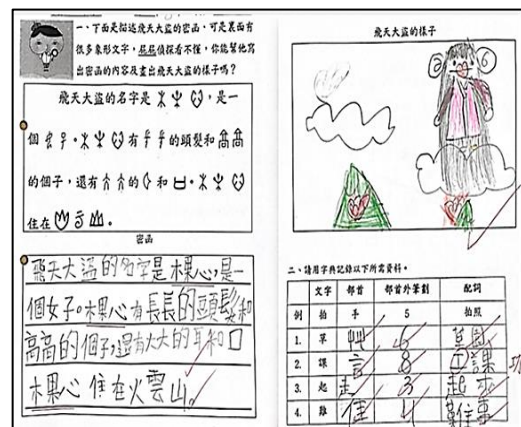 一、下面是描述飛天大盜的密函，可是裏面有
很多象形文字，屁屁偵探看不懂，你能幫他寫
出密函的內容及畫出飛天大盜的樣子嗎？
飛天大盜的名字是，是一
個。有的頭髮和
的個子，還有的和。
住在。
密函
飛天大盜的名字是木果心，是一
個女子。木果心有長長的頭髮和
高高的個子，還有大大的耳和口
木果心住在火雲山。
飛天大盜的樣子
二、請用字典記錄以下所需資料。
文字 部首 部首外筆劃 配詞
例 拍 手 5 拍照
1. 草 艸 6 草
2. 課 言 8 課
功
3. 起 走 3 起
4. 難 隹 難